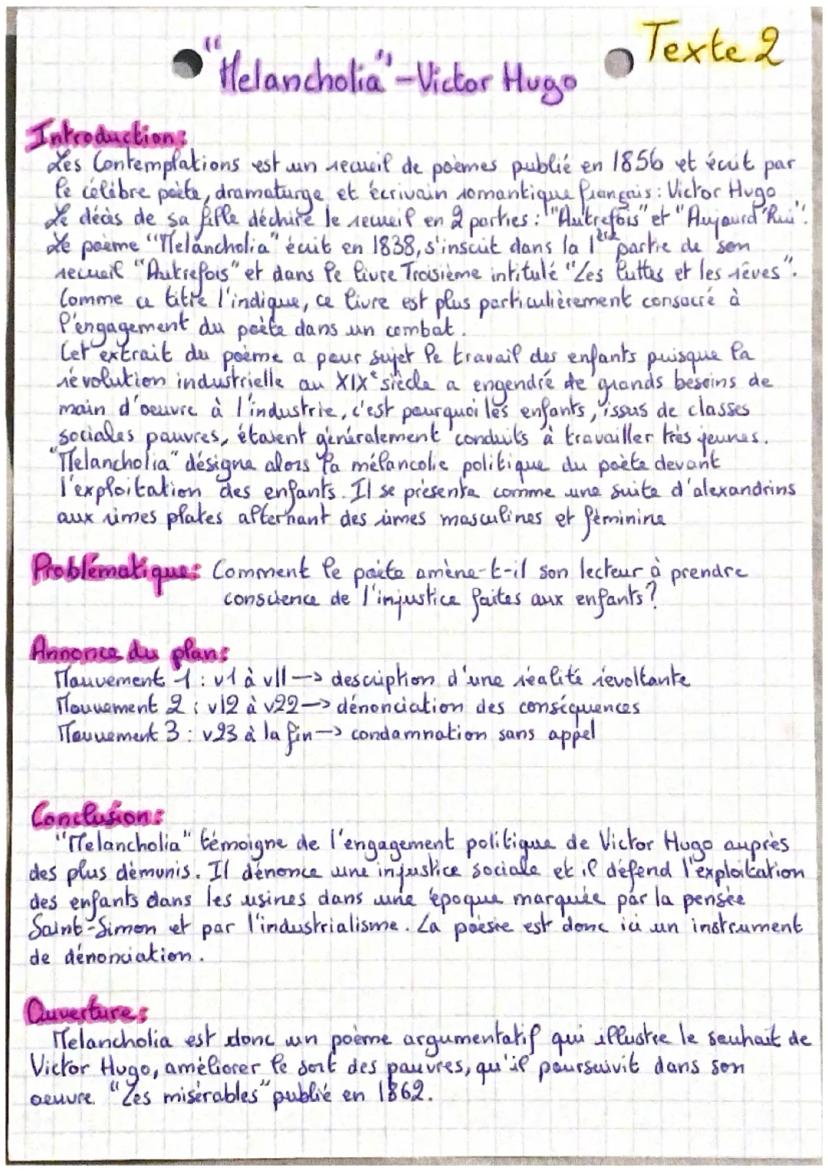 Texte 2
"Melancholia" - Victor Hugo
Introduction:
Les Contemplations est un recueil de poèmes publié en 1856 et écrit par
le célibre poète, dramaturge et écrivain romantique français : Victor Hugo
Le décès de sa fille déchire le recueil en 2 parties : "Autrefois" et "Aujourd'hui".
Le poème "Melancholia" écrit en 1838, s'inscrit dans la 1ère partie de son
recueil "Autrefois" et dans le livre Troisième intitulé "Les luttes et les rêves".
Comme ce titre l'indique, ce livre est plus particulièrement consacré à
l'engagement du poète dans un combat.
Cet extrait du poème a pour sujet le travail des enfants puisque la
révolution industrielle au XIXe siècle a engendré de grands besoins de
main d'oeuvre à l'industrie, c'est pourquoi les enfants, issus de classes
sociales pauvres, étaient généralement conduits à travailler très jeunes.
"Melancholia" désigne alors la mélancolie politique du poète devant
l'exploitation des enfants. Il se présente comme une suite d'alexandrins
aux rimes plates alternant des rimes masculines et féminine
Problématique: Comment le poète amène-t-il son lecteur à prendre
conscience de l'injustice faites aux enfants?
Annonce du plan:
Mouvement 1 : v1 à v11 —> description d'une réalité révoltante
Mouvement 2 : v12 à v22 —> dénonciation des conséquences
Mouvement 3 : v23 à la fin —> condamnation sans appel
Conclusion:
"Melancholia" témoigne de l'engagement politique de Victor Hugo auprès
des plus démunis. Il dénonce une injustice sociale et il défend l'exploitation
des enfants dans les usines dans une époque marquée par la pensée
Saint-Simon et par l'industrialisme. La poésie est donc ici un instrument
de dénonciation.
Ouverture:
Melancholia est donc un poème argumentatif qui illustre le souhait de
Victor Hugo, améliorer le sort des pauvres, qu'il poursuivit dans son
oeuvre "Les misérables" publié en 1862.